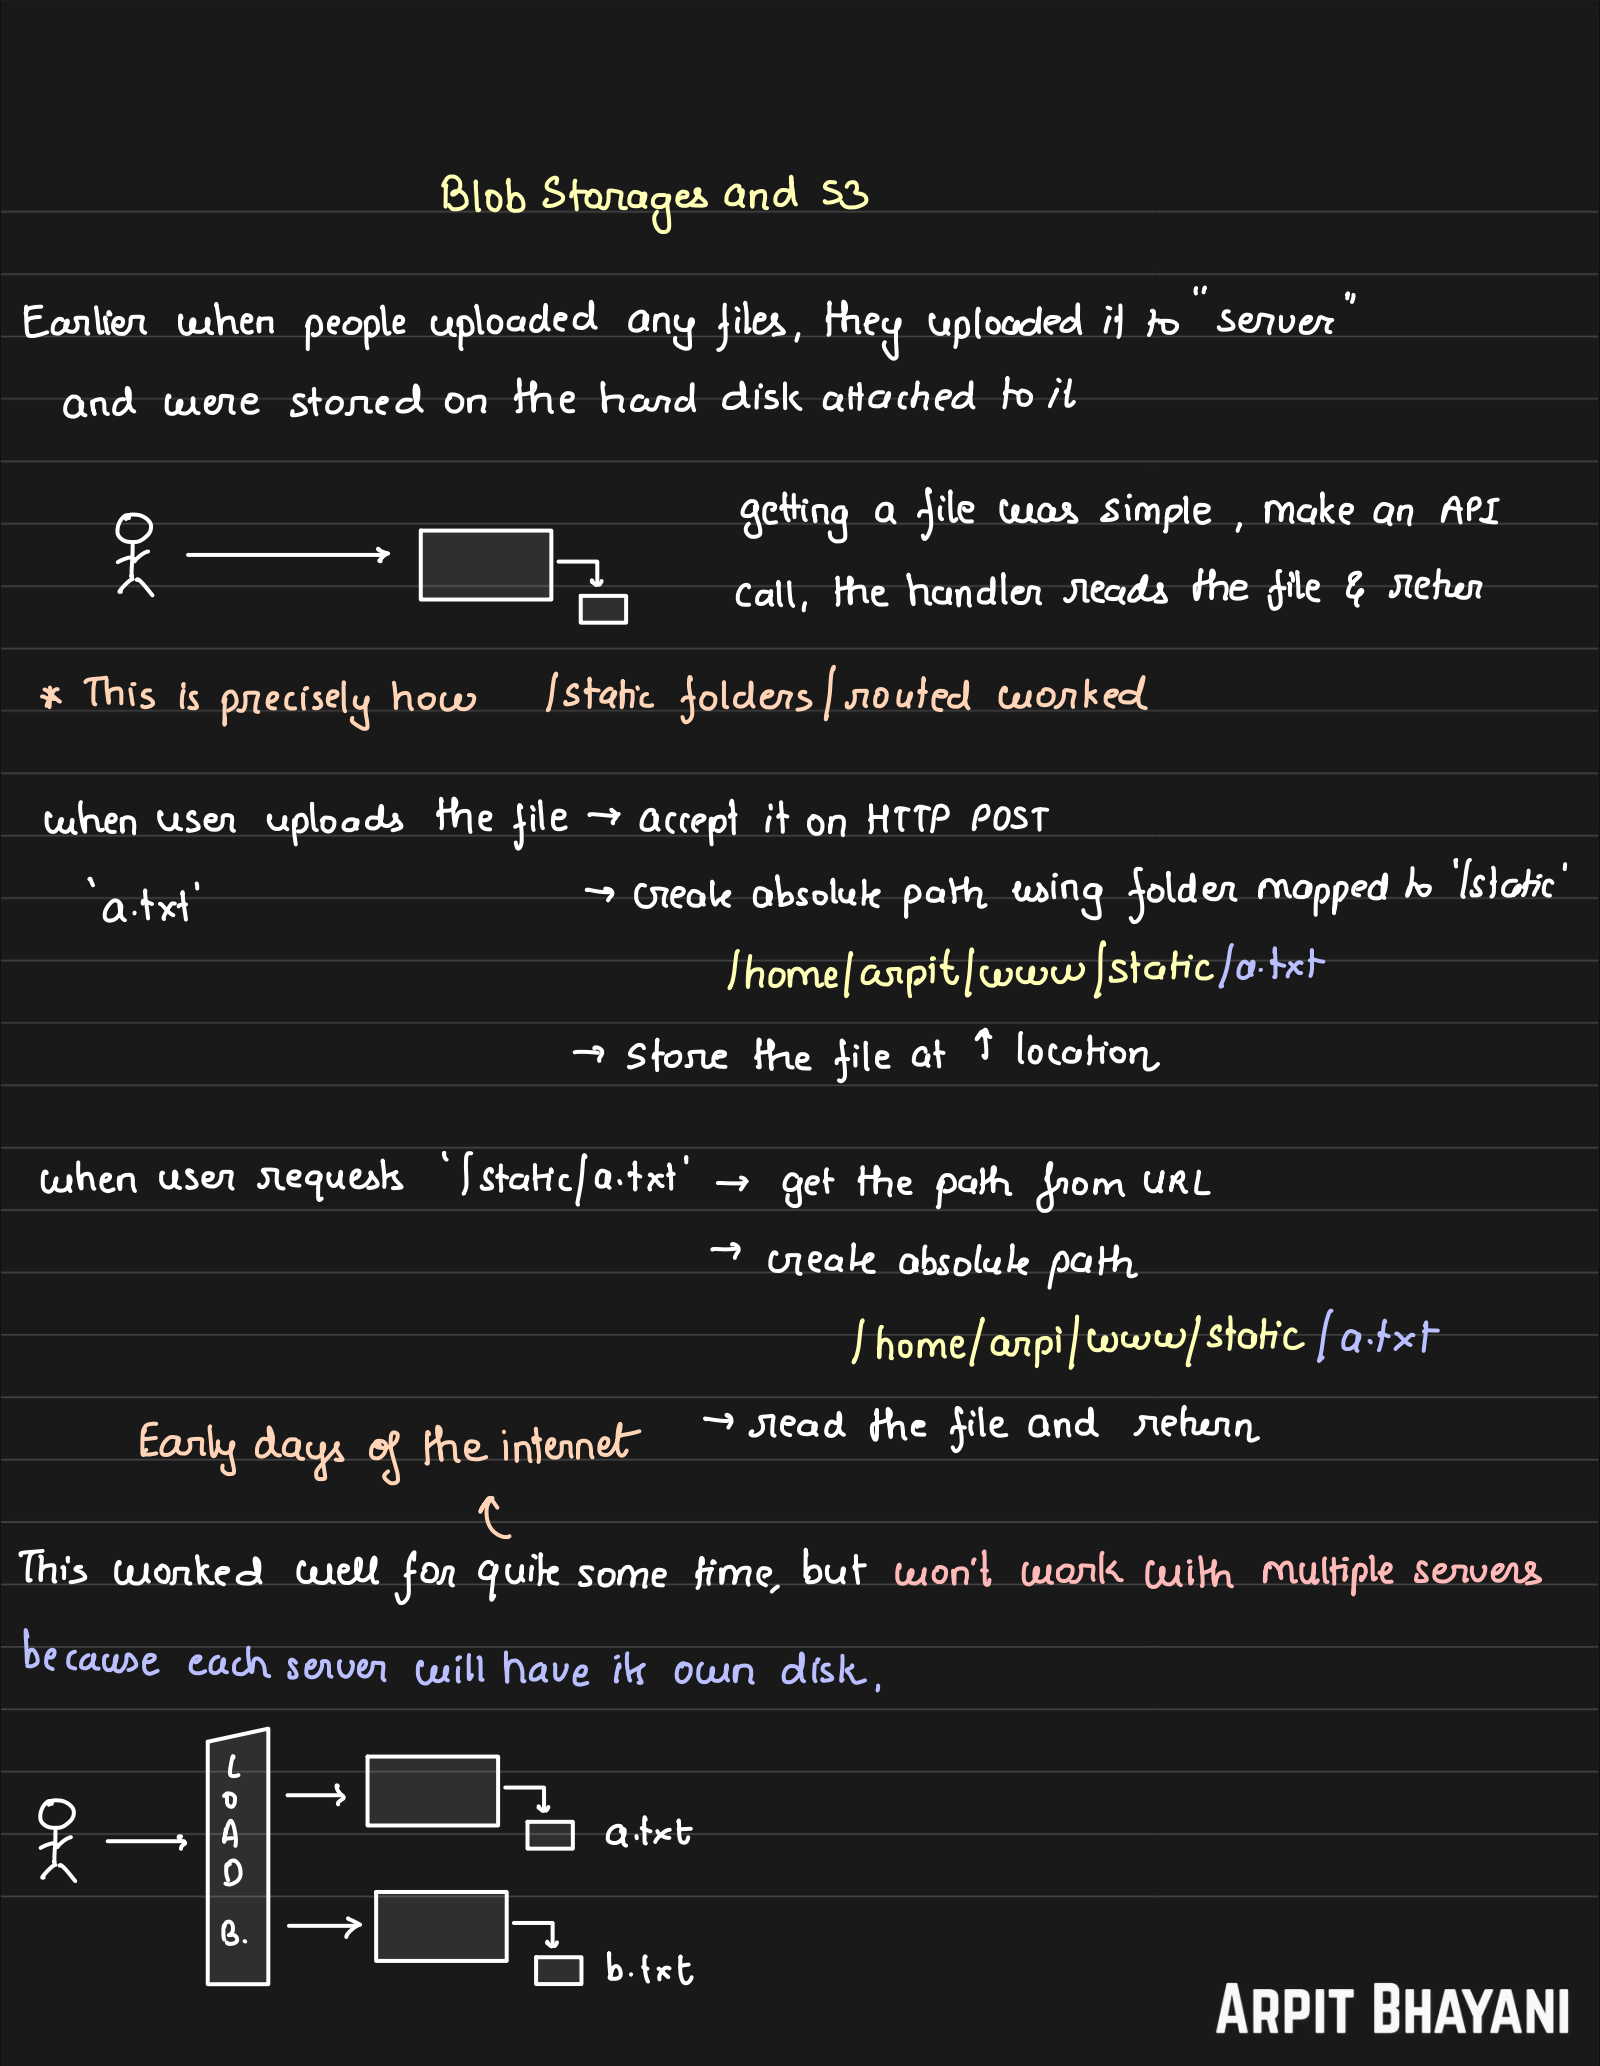 Blob Storages and S3
Earlier when people uploaded any files, they uploaded it to "server"
and were stored on the hard disk attached to it
getting a file was simple, make an API
call, the handler reads the file & retur
* This is precisely how /static folders/routed worked
when user uploads the file → accept it on HTTP POST
'a.txt' → create absolute path using folder mapped to '/static'
/home/arpit/www/static/a.txt
→ store the file at ↑ location
when user requests '/static/a.txt' → get the path from URL
→ create absolute path
/home/arpi/www/static/a.txt
→ read the file and return
Early days of the internet
This worked well for quite some time, but won't work with multiple servers
because each server will have its own disk,
LOAD B.
a.txt
b.txt
ARPIT BHAYANI